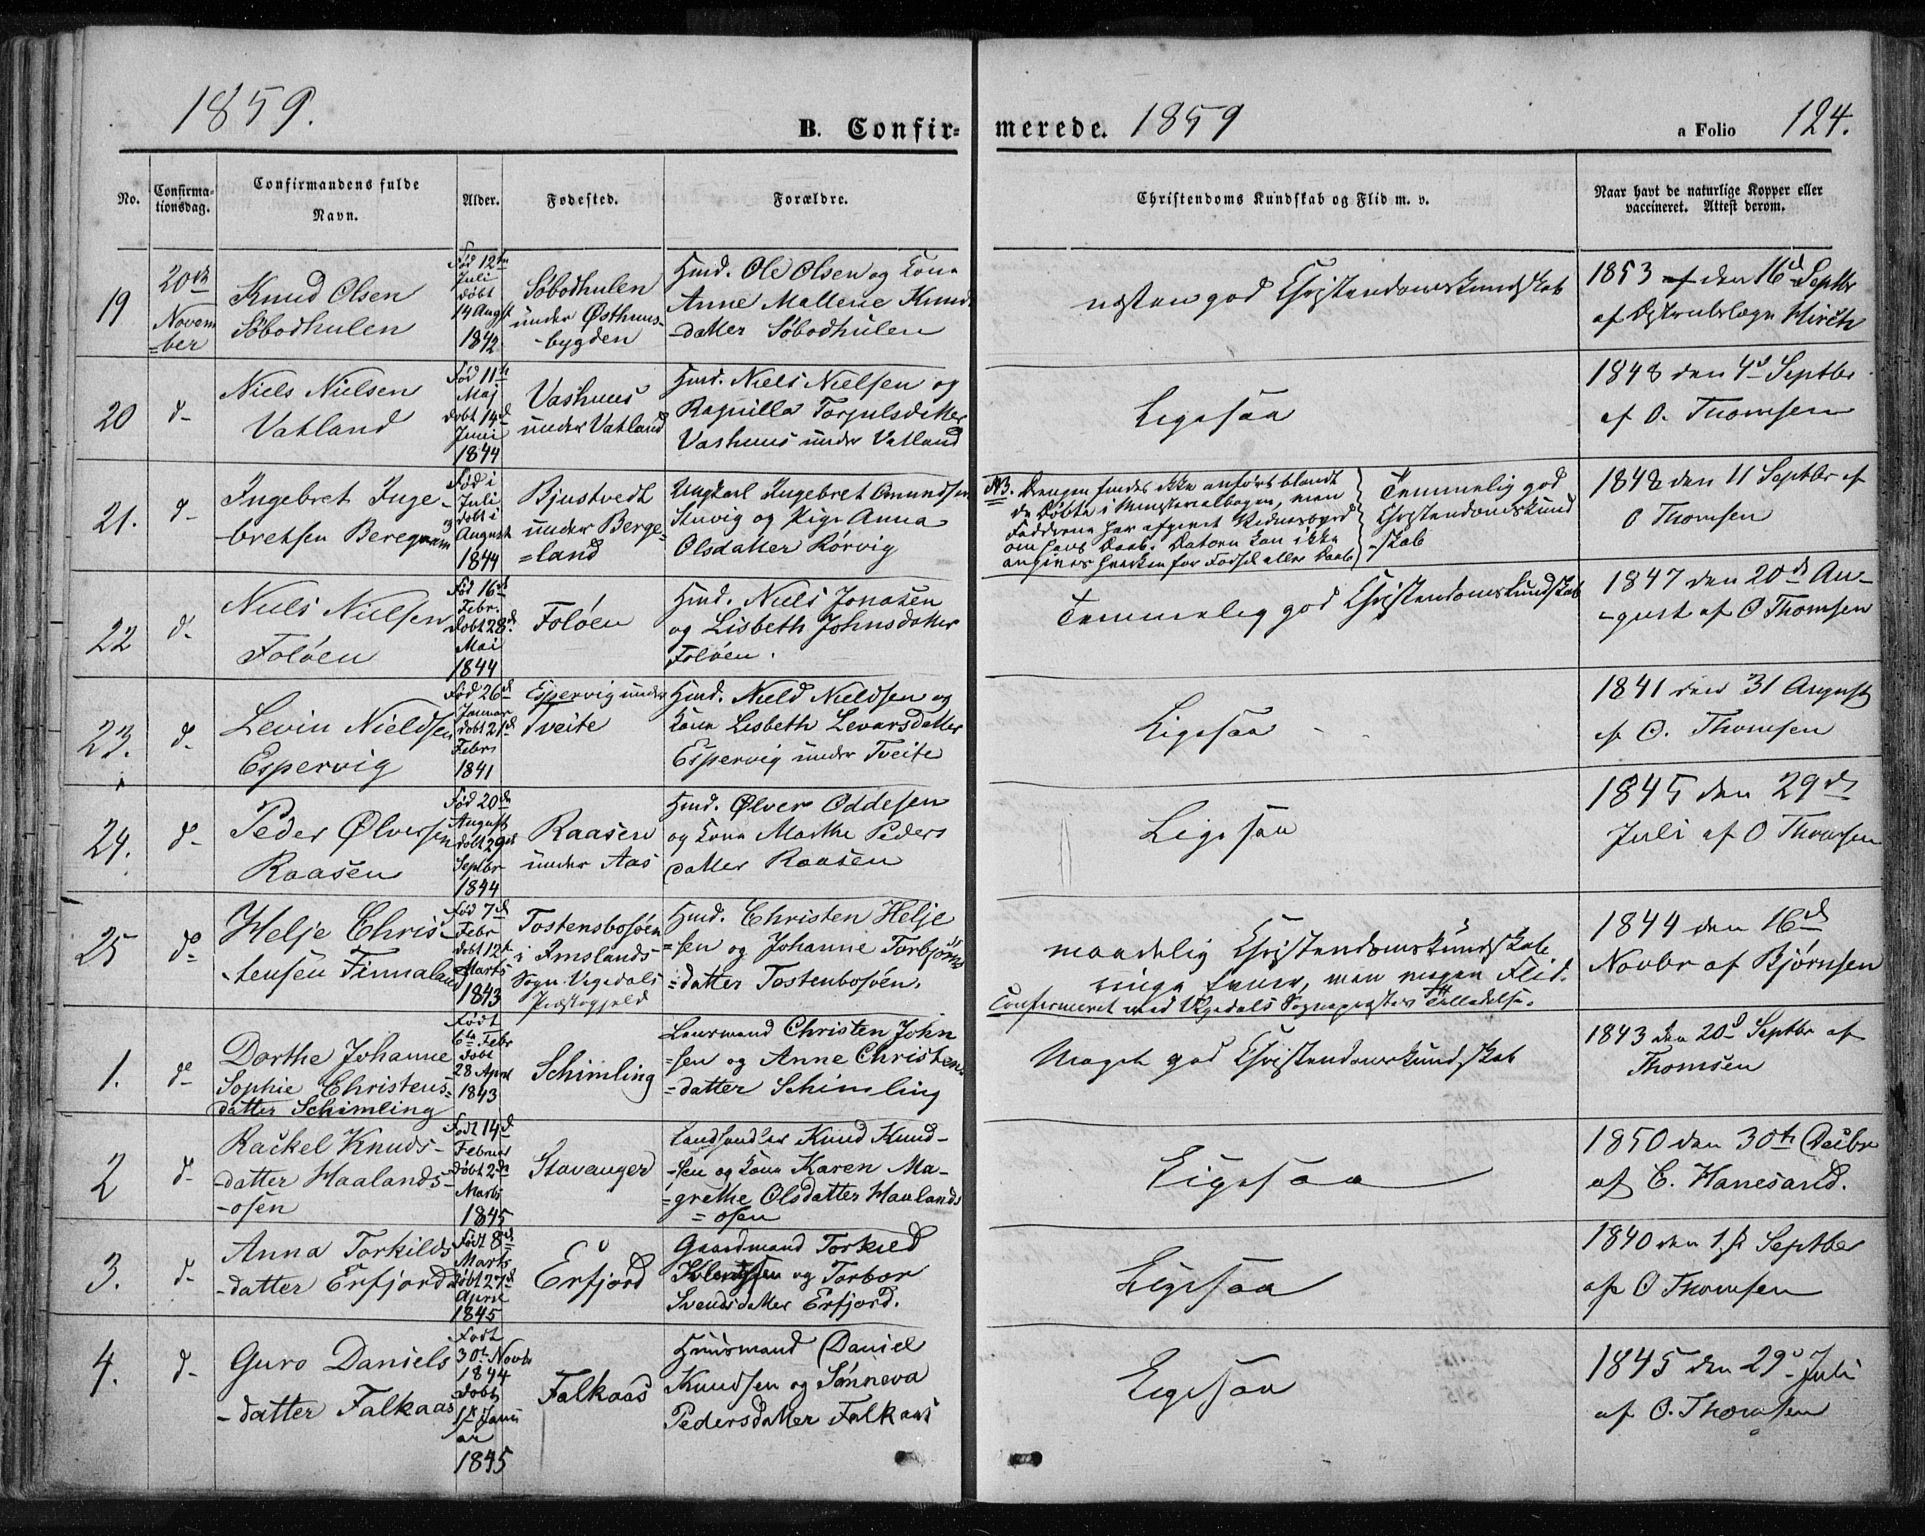 1859.
B. Confir=
merede. 1859
a Folio 124.
No.
Confirma-
tionsdag.
Confirmandens fulde
Navn.
Alder.
Fødested.
Forældre.
Christendoms Kundskab og Flid m. v.
Naar havt de naturlige Kopper eller
vaccineret. Attest derom.
19
20de
Novem
=ber
Knud Olsen
Söbodhulen
Fød 12te
Juli
døbt
14 Augst
1842
Söbodhulen
under Østhuus-
-bygden
Huusm. Ole Olsen og Kone
Anne Mallene Knuds
-datter Söbodhulen
næsten god Christendomskundskab
1853 den 16d Septbr
af Districtslæge Hirch
20
d-
Niels Nielsen
Vatland
Fød 11te
Maj
døbt 14d
Juni
1844
Vashuus
under Vatland
Huusm. Niels Nielsen og
Ragnilla Torjulsdatter
Vashuus under Vatland
Ligesaa
1848 den 4d Septbr
af O. Thomsen
21.
d-
Ingebret Inge-
-bretsen Beregvam
Fød i
Juli
døbt i
August
1844
Bjustvedt
under Berge-
=land
Ungkarl Ingebret Amundsen
Stuvig og Pige Anna
Olsdatter Rörvig
NB. Drengen findes ikke anført blandt
de Døbte i Ministerialbogen, men
Fadderne har afgivet Vidnesbyrd
om hans Daab. Datoen kan ikke
angives hverken for Fødsel eller Daab
Temmelig god
Christendomskund
-skab
1848 den 11 Septbr af
O Thomsen
22
d.
Niels Nielsen
Foløen
Fød 16d
Febr.
døbt 28d.
Mai
1844
Foløen
Huusm. Niels Jonasen
og Lisbeth Johnsdatter
Foløen.
Temmelig god Christendomskundskab
1847 den 20d Au-
-gust af O Thomsen
23.
d.
Levin Nieldsen
Espervig
Fød 26d
Januar
døbt 21d
Febr
1841
Espervig under
Tveite
Huusm. Nield Nieldsen og
Kone Lisbeth Levarsdatter
Espervig under Tveite
Ligesaa
1841 den 31 August
af O. Thomsen
24.
d-
Peder Ølversen
Raasen
Fød 20de
August
døbt 29de
Septbr
1844
Raasen
under Aas
Huusm. Ølver Oddesen
og Kone Marthe Peders
datter Raasen
Ligesaa
1845 den 29d
Juli af O Thomsen
25
do-
Helje Chris-
-tensen Finnaland
Fød 7d
Febr
døbt 12te
Marts
1843
Tostensbosöen
i Imslands
Sogn Vigedals
Præstegjeld
Huusm. Christen Helje
=sen og Johanne Torbjörns
=datter Tostenbosöen
maadelig Christendomskundskab
ringe Evner, men megen Flid.
Confirmeret med Vigedals Sognepræstes Tilladelse.
1844 den 16d
Novbr af Bjørnsen
1.
do-
Dorthe Johanne
Sophie Christens=
datter Schimling
Født
6te Febr
døbt
28 April
1843
Schimling
Christen John
=sen og Anne Christens
=datter Schimling
Meget god Christendomskundskab
1843 den 20d Septbr af
Thomsen
2
d-
Rackel Knuds-
-datter Haalands-
-osen
Født 14d
Februar
døbt 2de
Marts
1845
Stavanger
Landhandler Knud Knud-
-sen og Kone Karen Ma-
=grethe Olsdatter Haalands
=osen
Ligesaa
1850 den 30te Decbr
af C. Hanesand.
3.
d-
Anna Torkilds
-datter Erfjord
Født 8d
Marts
døbt 27d
April
1845
Erfjord
Gaardmand Torkild
og Torbor
Svendsdatter Erfjord.
Ligesaa
1840 den 1ste Septber
af O Thomsen
4.
d-
Guro Daniels
-datter Falkaas
Født
30te Novbr
1844
døbt
1ste Janu
ar
1845
Falkaas
Huusmand Daniel
Knudsen og Sönneva
Pedersdatter Falkaas
Ligesaa
1845 den 29d Juli
af O. Thomsen